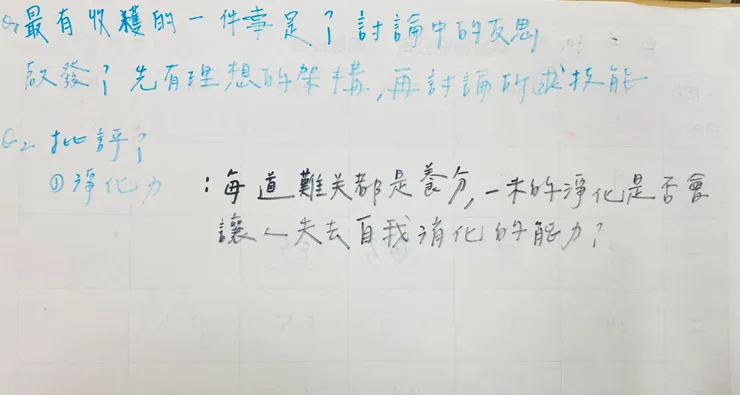 Q1 最有收獲的一件事是？討論中的反思
啟發？先有理想的架構，再討論所需技能
Q2 批評？
①淨化力 ：每道難关都是養分，一味的淨化是否會
讓人失去自我消化的能力？